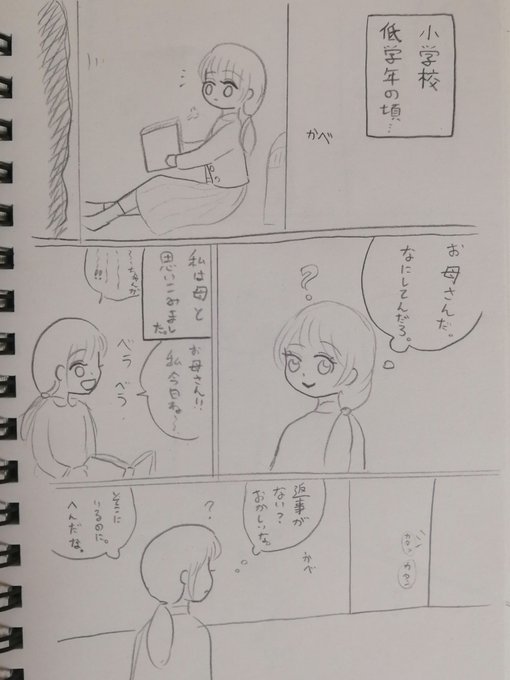 小学校
低学年の頃…
かべ
お母さんだ。
なにしてんだろ。
?
私は母と
思いこみました。
お母さん!!
私今日ね〜
ベラ
ベラ
カタン
カタン
かべ
返事が
ない?
おかしいな。
?
そこに
いるのに。
へんだな。